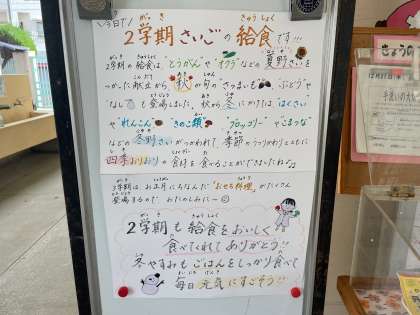 今日で!
2学期さいごの給食です!!!
2学期の給食は、"とうがん"や"オクラ"などの夏野さいを
つかった献立から、秋が旬の"さつまいも"、"ぶどう"や
"なし"も登場しました。秋から冬にかけては、"はくさい"
や"れんこん"、"きのこ類"、"ブロッコリー"や"こまつな"
などの冬野さいがつかわれ、季節のうつりかわりとともに
四季おりおりの食材を食べることができましたね♪
3学期は、お正月にちなんだ"おせち料理"がたくさん
登場するので おたのしみに〜
2学期も給食をおいしく
食べてくれてありがとう!!
冬やすみもごはんをしっかり食べて
毎日元気にすごそう!!
きょうの
12月21日